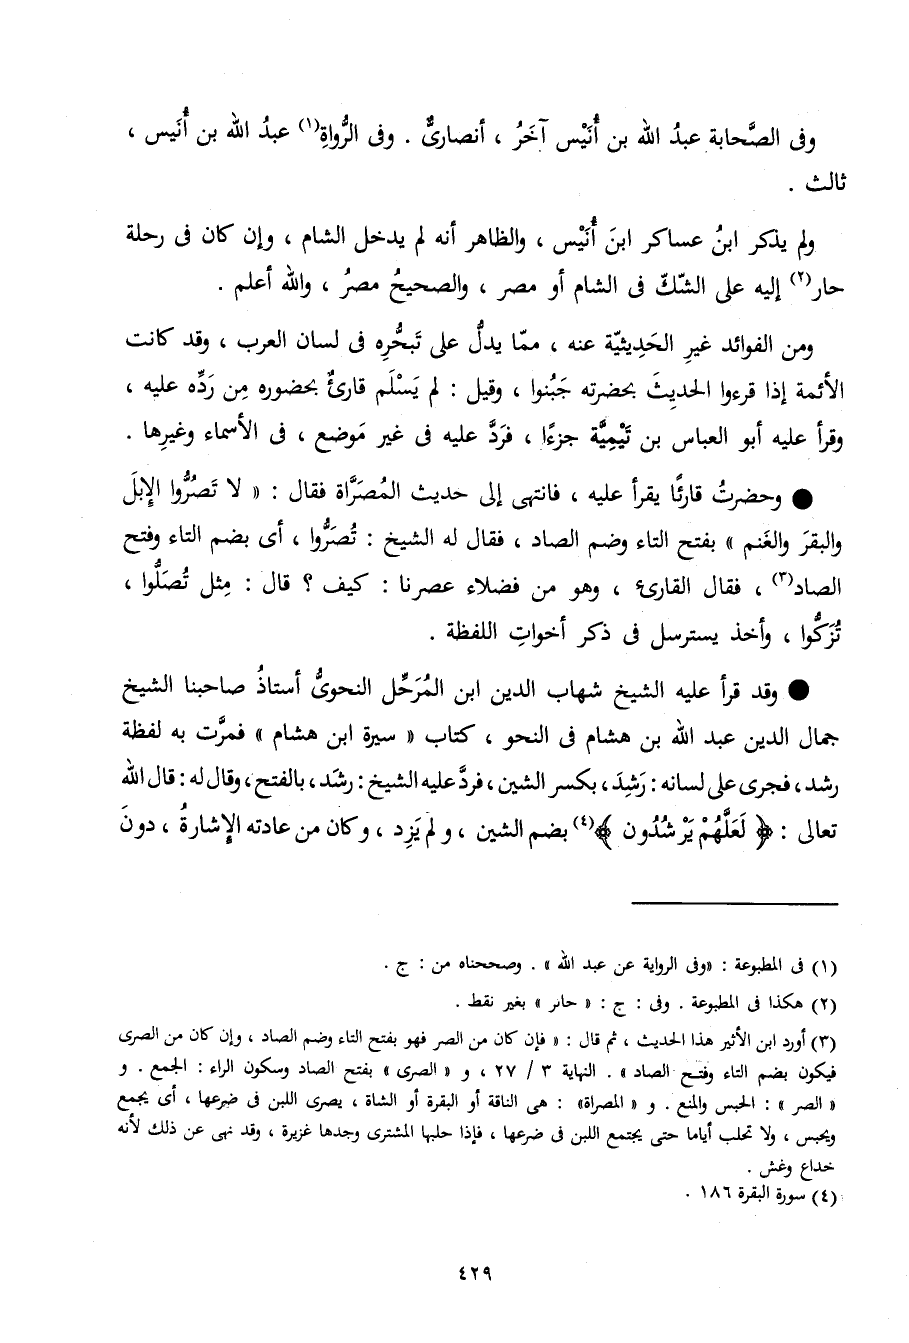 وفى الصَّحابة عبدُ الله بن أُنَيْس آخَرُ ، أنصارىٌّ . وفى الرُّواةِ(١) عبدُ الله بن أُنَيس ،
ثالث .
ولم يذكر ابنُ عساكر ابنَ أُنَيْس ، والظاهر أنه لم يدخل الشام ، وإن كان فى رحلة
حار(٢) إليه على الشّكّ فى الشام أو مصر ، والصحيحُ مصرُ ، والله أعلم .
ومن الفوائد غيرِ الحَدِيثيّة عنه ، ممّا يدلُّ على تَبحُّرِه فى لسان العرب ، وقد كانت
الأئمة إذا قرءوا الحديثَ بحضرته جَبُنوا ، وقيل : لم يَسْلَم قارئٌ بحضوره مِن رَدِّه عليه ،
وقرأ عليه أبو العباس بن تَيْمِيَّة جزءًا ، فرَدَّ عليه فى غير مَوضع ، فى الأسماء وغيرِها .
● وحضرتُ قارئًا يقرأ عليه ، فانتهى إلى حديث المُصَرَّاة فقال : « لا تَصُرُّوا الإبلَ
والبقرَ والغَنم » بفتح التاء وضم الصاد ، فقال له الشيخ : تُصَرُّوا ، أى بضم التاء وفتح
الصاد(٣) ، فقال القارئ ، وهو من فضلاء عصرنا : كيف ؟ قال : مِثل تُصَلُّوا ،
تُزَكُّوا ، وأخذ يسترسل فى ذكر أخواتِ اللفظة .
● وقد قرأ عليه الشيخ شهاب الدين ابن المُرَحِّل النحوىُّ أستاذُ صاحبنا الشيخ
جمال الدين عبد الله بن هشام فى النحو ، كتاب « سيرة ابن هشام » فمرَّت به لفظة
رشد ، فجرى على لسانه : رَشِدَ ، بكسر الشين ، فردَّ عليه الشيخ : رشَد ، بالفتح ، وقال له : قال الله
تعالى : ﴿ لَعَلَّهُمْ يَرْشُدُون ﴾(٤) بضم الشين ، و لم يَزِد ، وكان من عادته الإشارةُ ، دونَ
(١) فى المطبوعة : «وفى الرواية عن عبد الله » . وصححناه من : ج .
(٢) هكذا فى المطبوعة . وفى : ج : « حاىر » بغير نقط .
(٣) أورد ابن الأثير هذا الحديث ، ثم قال : « فإن كان من الصر فهو بفتح التاء وضم الصاد ، وإن كان من الصرى
فيكون بضم التاء وفتح الصاد » . النهاية ٣ / ٢٧ ، و « الصرى » بفتح الصاد وسكون الراء : الجمع . و
« الصر » : الحبس والمنع . و « المصراة» : هى الناقة أو البقرة أو الشاة ، يصرى اللبن فى ضرعها ، أى يجمع
ويحبس ، ولا تحلب أياما حتى يجتمع اللبن فى ضرعها ، فإذا حلبها المشترى وجدها غزيرة ، وقد نهى عن ذلك لأنه
خداع وغش .
(٤) سورة البقرة ١٨٦ .
٤٢٩